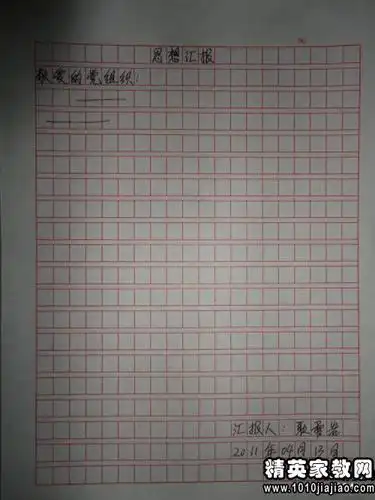 思想汇报
敬爱的党组织:
汇报人:
2011年04月13日
精英家教网
www.1010jiajiao.com